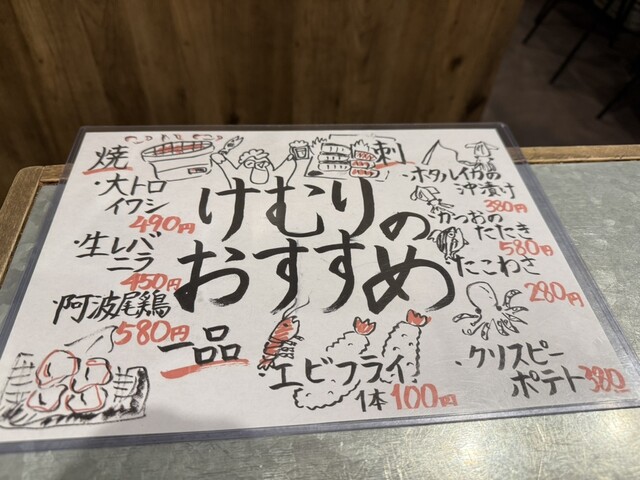 けむりの
おすすめ
焼
・大トロ
イワシ
490円
・生レバ
ニラ
450円
・阿波尾鶏
580円
刺
・ホタルイカの
沖漬け
380円
・かつおの
たたき
580円
・たこわさ
280円
一品
・エビフライ
1本100円
・クリスピー
ポテト380